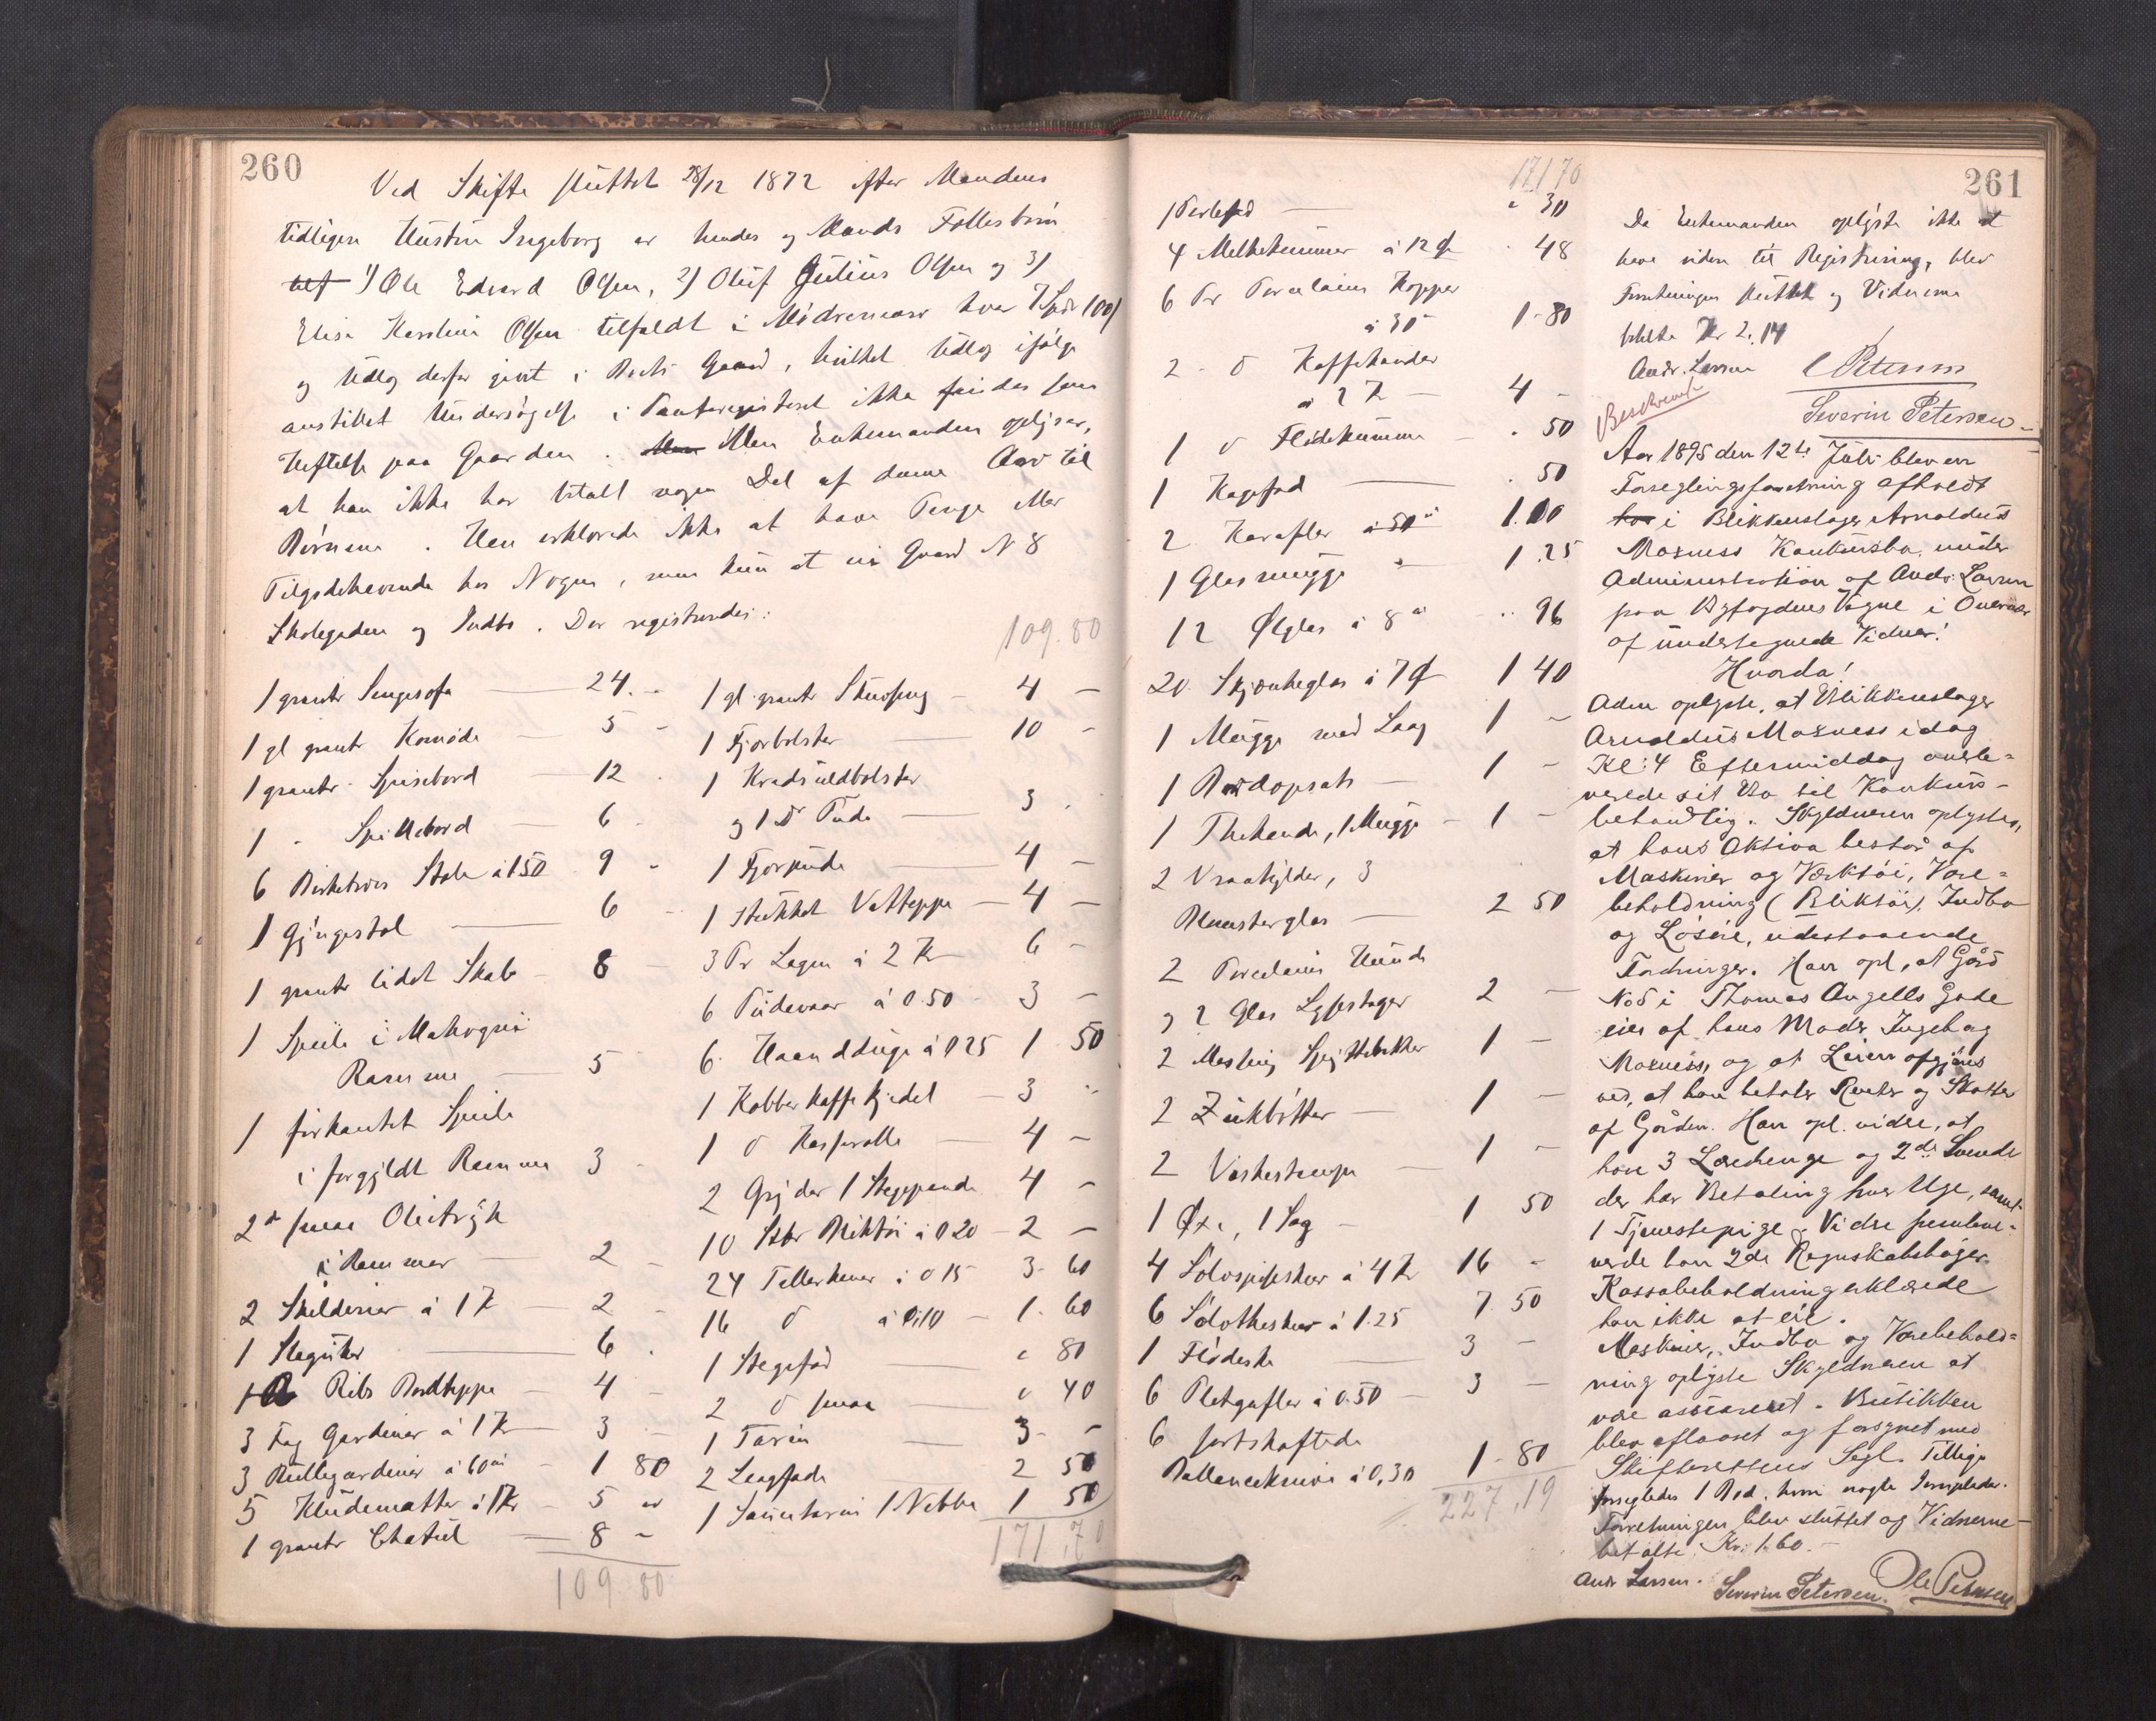 260
Ved Skifte sluttet 28/12 1872 efter Mandens
tidligere Hustru Ingeborg er hendes og Mands Fællesbørn
1) Ole Edvard Olsen, 2) Oluf Julius Olsen og 3)
Elise Karoline Olsen tilfaldt i Mødrenearv hver 7 Spdr
og Udlæg derfor givet i Boets Gaard, hvilket Udlæg ifølge
anstillet Undersøgelse i Panteregisteret ikke findes som
Heftelse paa Gaarden. Men Enkemanden oplyser,
at han ikke har betalt nogen Del af denne Arv til
Børnene. Han erklærede ikke at have Penge eller
Tilgodehavende hos Nogen, men kun at eie Gaard N 8
Skolegaden og Indbo. Der registreredes:
109.80
1 grantr Sengesofa 24. -
1 gl grantr Komode 5 -
1 grantr Spisebord 12 -
1 " Spillebord 6 -
6 Birketræes Stole à 1.50 9 -
1 Gyngestol 6 -
1 grantr lidet Skab 8 -
1 Speile i Mahogni
Ramme 5 -
1 firkantet Speile
i forgyldt Ramme 3 -
2 smaa Olietryk
i Rammer 2 -
2 Skilderier à 1 Kr 2 -
1 Slaguhr 6 -
1 Ribs Bordteppe 4 -
3 Fag Gardiner à 1 Kr 3 -
3 Rullegardiner à 60 1 80
5 Kludematter à 1 Kr 5 "
1 grantr Chatul 8 -
109.80
1 gl. grantr Skuvseng 4 -
1 Fjørbolster 10 -
1 Kradsuldbolster
og 1 D Pude 3 -
1 Fjørpude 4 -
1 stukket Vatteppe 4 -
3 Pr Lagen à 2 Kr 6 -
6 Pudevaar à 0.50 3 -
6 Haandduge à 0.25 1 50
1 Kobberkaffekjedel 3 "
1 d Kasserolle 4 -
2 Gryder 1 Stegepande 4 -
10 Stkr Bliktøi à 0.20 2 -
24 Tallerkener à 0.15 3. 60
16 d à 0.10 1. 60
1 Stegefad " 80
2 d smaa " 40
1 Tarin 3 -
2 Laagfade 2 50
1 Sausetarin 1 Nebbe 1 50
171,70
261
171 70
1 Terlefad " 30
4 Melkekummer à 12 " 48
6 Pr Porcelains Kopper
à 30 1. 80
2 d Kaffekander
à 2 Kr 4 -
1 d Flødekumme " 50
1 Kagefad . 50
2 Karafler à 50 1.00
1 Glasmugge 1.25
12 Ølglas à 8 .. 96
20 Skjænkeglas à 7 1 40
1 Mugge med Laag 1 -
1 Bordopsats 1 -
1 Thekande, 1 Mugge 1 -
2 Vraahylder, 3
Blomsterglas 2 50
2 Porcelains Hunde
og 2 Glas Lysestager 2 -
2 Messing Spyttebakker 1 -
2 Zinkbøtter 1 -
2 Vaskestampe 1 -
1 Øxe, 1 Sag 1 50
4 Sølvspiseskeer à 4 Kr 16 -
6 Sølvtheskeer à 1.25 7. 50
1 Flødeske 3 -
6 Pletgafler à 0.50 3 -
6 sortskaftede
Ballanceknive à 0,30 1. 80
227,19
Da Enkemanden oplyste ikke at
have videre til Registrering, blev
Forretningen sluttet og Vidnerne
betalte Kr 2.14
Andr. Larsen Petersen
Severin Petersen
Beskreven
Aar 1895 den 12te Juli blev en
Forseglingsforretning afholdt
i Blikkenslager Arnoldus
Moxness Konkursbo under
Administration af Andr. Larsen
paa Byfogdens Vegne i Overvær
af undertegnede Vidner!
Hvorda!
Adm oplyste, at Blikkenslager
Arnoldus Moxness idag
Kl: 4 Eftermiddag overle=
verede sit Bo til Konkurs-
behandlig. Skyldneren oplyste,
at hans Aktiva bestod af
Maskiner og Værktøi, Vare=
beholdning (Bliktøi), Indbo
og Løsøre, udestaaende
Fordringer. Han opl, at Gård
No 5 i Thomas Angells Gade
eies af hans Moder Ingeborg
Moxness, og at Leien afgjøres
ved, at han betaler Renter og Skatter
af Gården. Han opl. vidre, at
han 3 Lærdrenge og 2de Svende
der har Betaling hver Uge, samt
1 Tjenestepige. Vidre fremleve=
rede han 2de Regnskabsbøger.
Kassabeholdning erklærede
han ikke at eie.
Maskiner, Indbo og Varebehold=
ning oplyste Skyldneren at
være assureret. Butikken
blev aflaaset og forsynet med
Skifterettens Segl. Tillige
forsegledes 1 Bod, hvori nogle
Forretningen blev sluttet og Vidnerne
betalte Kr. 1.60.-
Andr Larsen. Severin Petersen. Ole Petersen